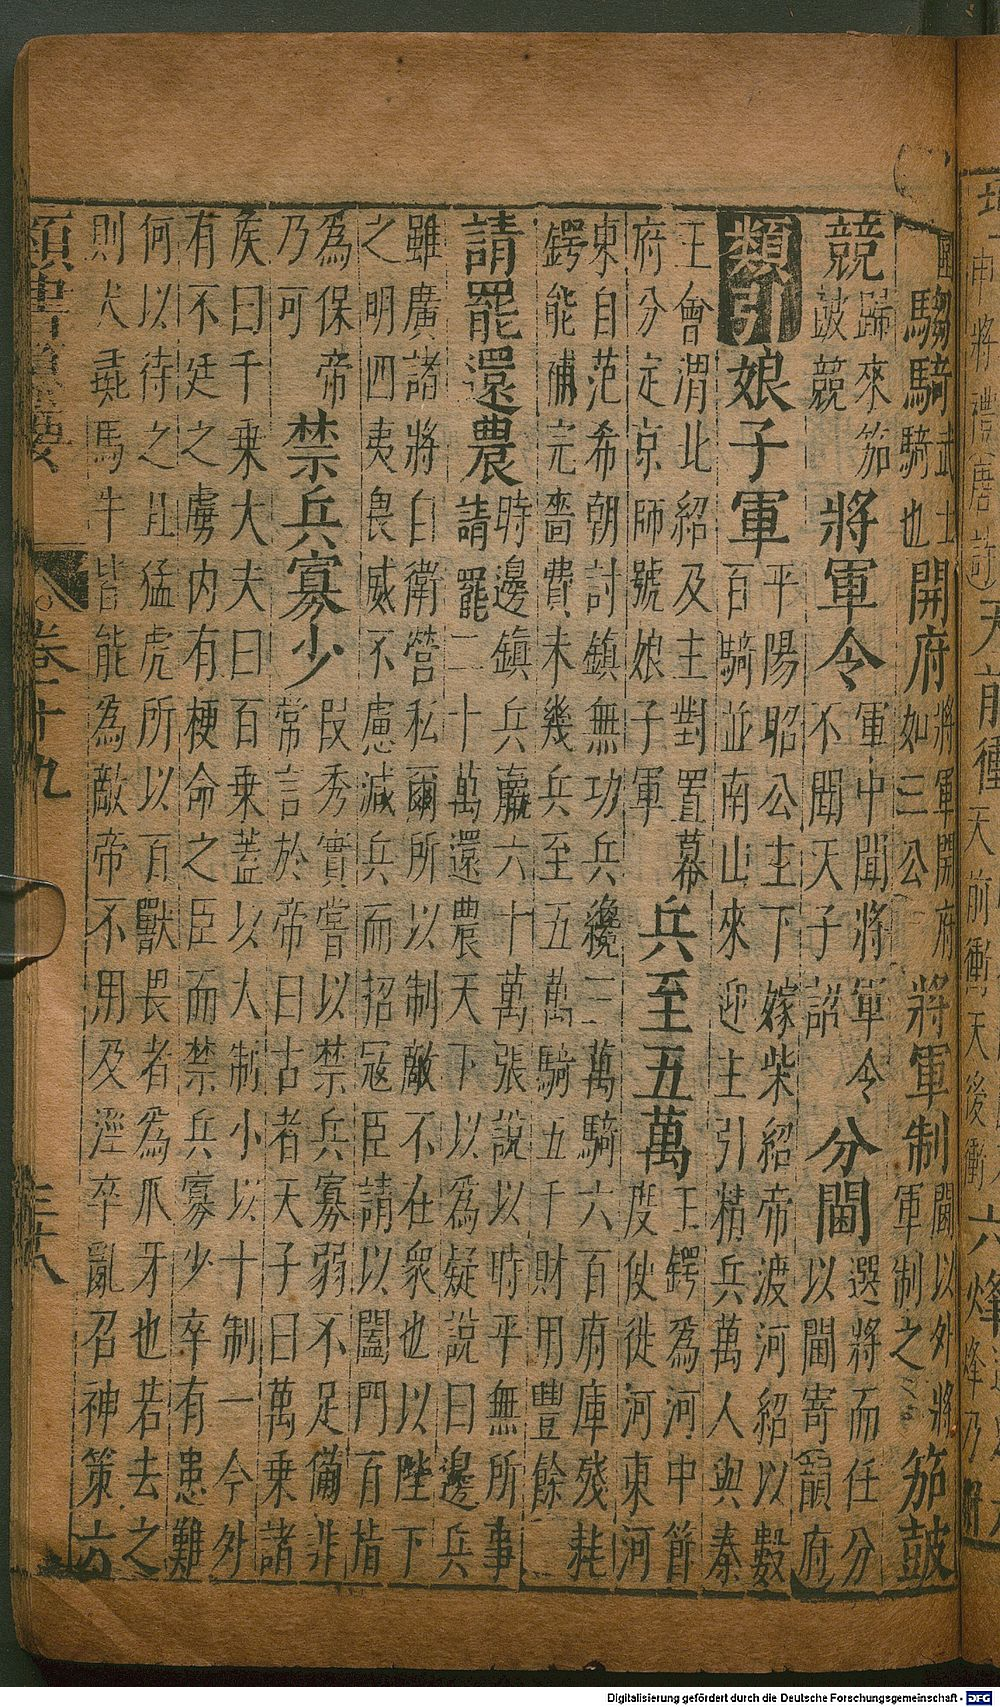 武士
騶騎騎也開府將軍開府
如三公將軍制閫以外將
軍制之笳鼓
競歸來笳
鼓競將軍令軍中聞將軍令
不聞天子詔分閫選將而任分
以閫寄韻府
類引娘子軍平陽昭公主下嫁柴紹帝渡河紹以數
百騎並南山來迎主引精兵萬人與秦
王會渭北紹及主對置幕
府分定京師號娘子軍兵至五萬王鍔爲河中節
度使從河東河
東自范希朝討鎮無功兵纔三萬騎六百府庫殘耗
鍔能補完嗇費未幾兵至五萬騎五千財用豐餘
請罷還農時邊鎮兵贏六十萬張說以時平無所事
請罷二十萬還農天下以為疑說曰邊兵
雖廣諸將自衛營私爾所以制敵不在衆也以陛下
之明四夷畏威不慮減兵而招冦臣請以闔門百指
為保帝
乃可禁兵寡少叚秀實嘗以禁兵寡弱不足備非
常言於帝曰古者天子曰萬乗諸
侯曰千乗大夫曰百乗蓋以大制小以十制一今外
有不廷之虜内有梗命之臣而禁兵寡少卒有患難
何以待之且猛虎所以百獸畏者為爪牙也若去之
則犬彘馬牛皆能為敵帝不用及涇卒亂召神策六
類書纂要 卷二十九
Digitalisierung gefördert durch die Deutsche Forschungsgemeinschaft - DFG